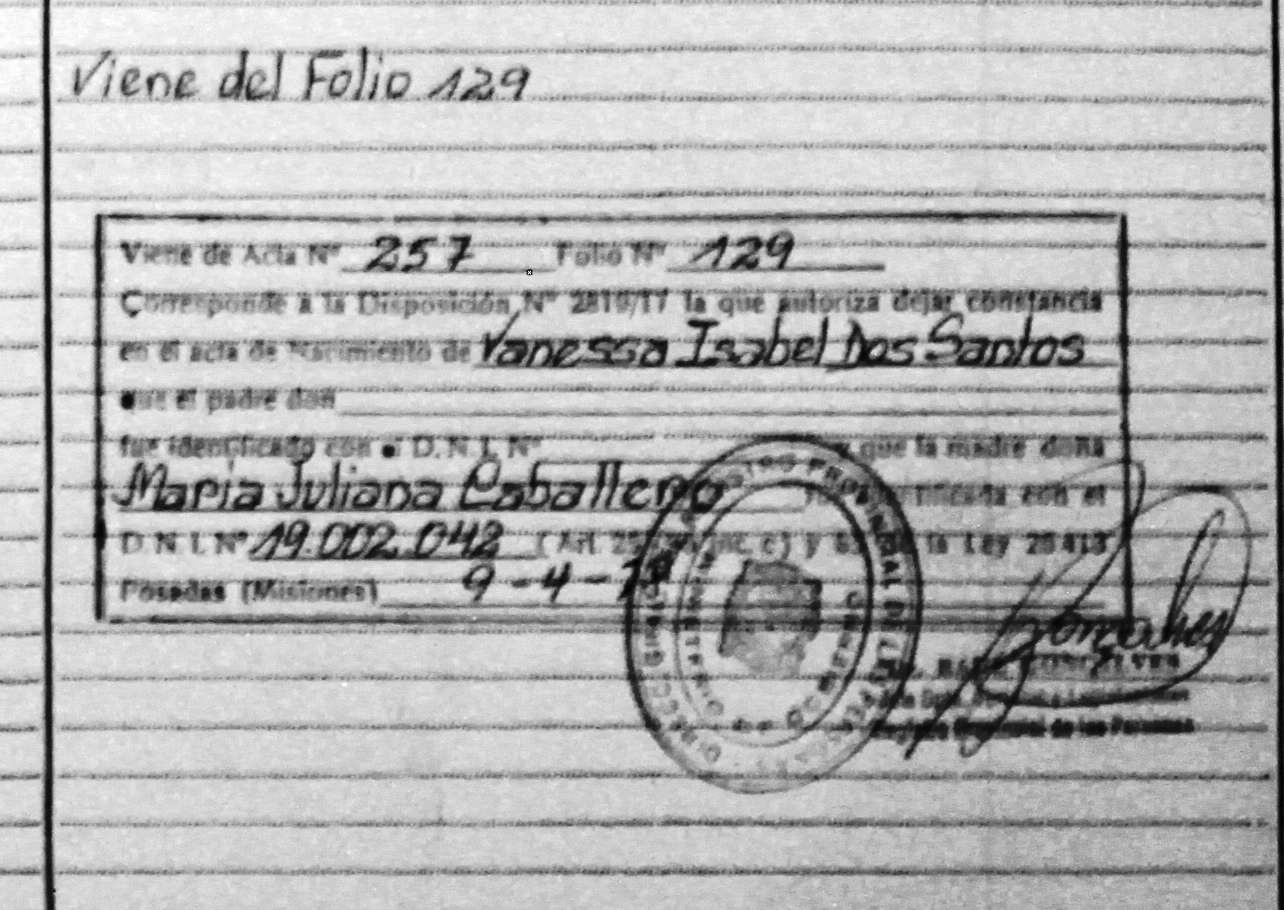 Viene del Folio 129
Viene de Acta Nº 257 Folio Nº 129
Corresponde a la Disposición Nº 2819/17 la que autoriza dejar constancia
en el acta de Nacimiento de Vanessa Isabel Dos Santos
que el padre don
fue identificado con el D.N.I. Nº y que la madre doña
María Juliana Caballero fue identificada con el
D.N.I. Nº 19.002.042 (Art. inc. c) y la Ley 26413
Posadas (Misiones) 9-4-18
PROVINCIAL DE LAS PERSONAS
GONCALVES
de las Personas